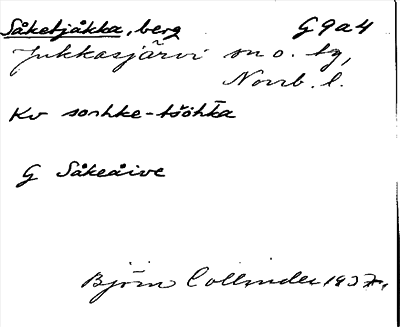 Såketjåkka, berg G9a4
Jukkasjärvi sn o. tg,
Norrb. l.
Kv sorhke-tšohkka
G Såkeåive
Björn Collinder 1937.